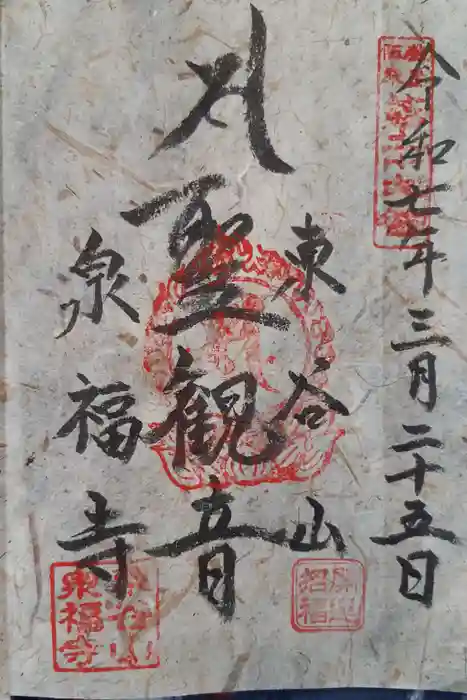 令和七年三月二十五日
東谷山
聖観音
泉福寺
開運
招福
泉福寺